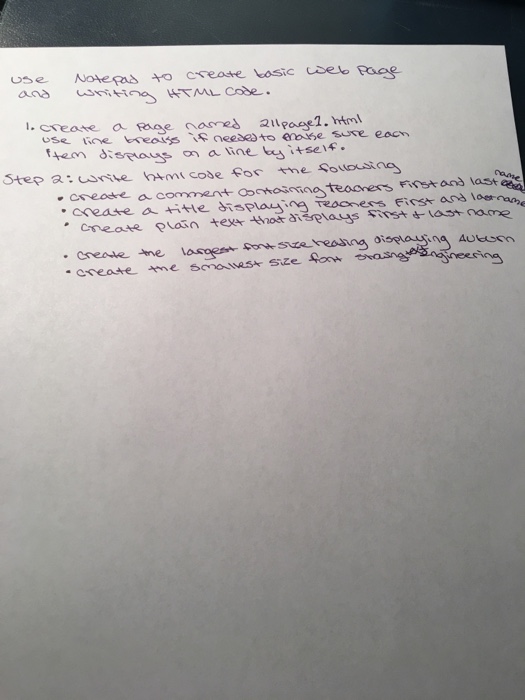 use Notepad to create basic web page
and writing HTML code.
1. create a page named 211page1.html
use line breaks if needed to make sure each
item displays on a line by itself.
Step 2: write html code for the following
• create a comment containing teachers First and last name
• create a title displaying Teachers First and last name
• create plain text that displays first & last name
• create the largest font size heading displaying Auburn
• create the smallest size font Engineering